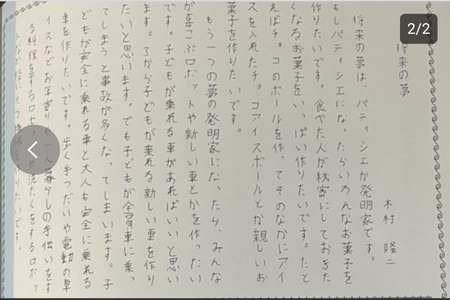 2/2
将来の夢
木村 隆二
将来の夢は、パティシエか発明家です。
もしパティシエになったらいろんなお菓子を
作りたいです。食べた人が秘密にしておきた
くなるお菓子をいっぱい作りたいです。たと
えばチョコのボールを作ってそのなかにアイ
スを入れたチョコアイスボールとか親しいお
菓子を作りたいです。
もう一つの夢の発明家になったら、みんな
が喜こぶロボットや新しい車とかを作ったい
です。子どもが乗れる車があればいいと思い
ます。だから子どもが乗れる新しい車を作り
たいと思います。でも子どもが全員車に乗っ
てしまうと事故が多くなってしまいます。子
どもが安全に乗れる車と大人も安全に乗れる
車を作りたいです。歩く手つだいや電動の車
イスなどお年寄り 一人暮らしの手伝いをす
る料理をするロボッ たくをするロボッ